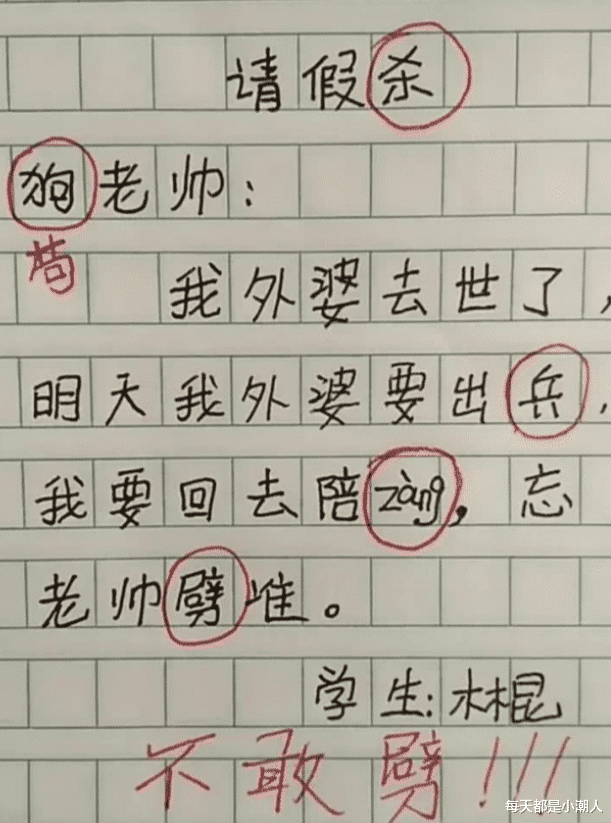 请假杀
狗老帅：
苟
我外婆去世了，
明天我外婆要出兵，
我要回去陪zàng，忘
老帅劈准。
学生：木棍
不敢劈!!!
每天都是小潮人